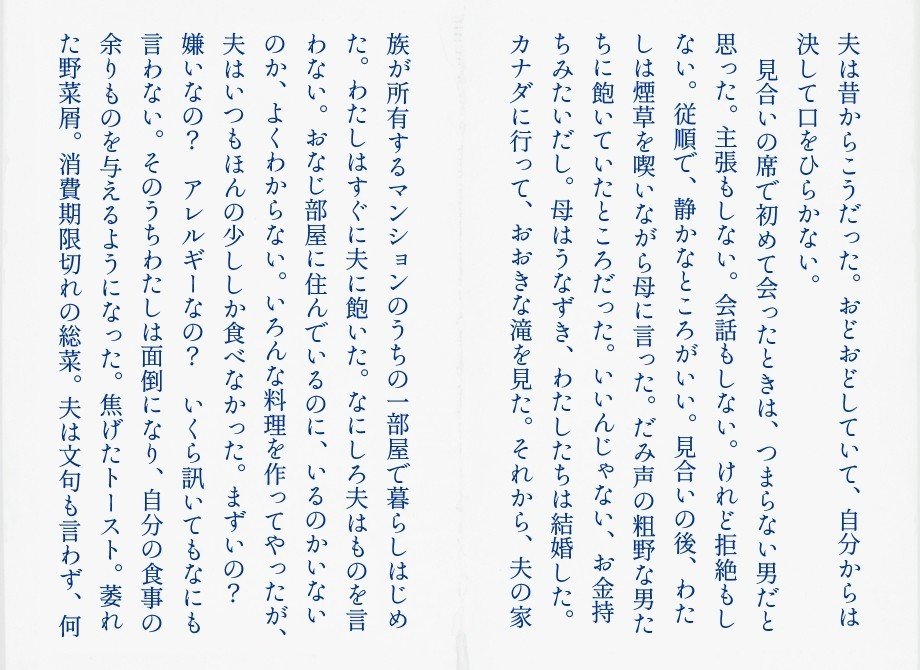 夫は昔からこうだった。おどおどしていて、自分からは
決して口をひらかない。
　見合いの席で初めて会ったときは、つまらない男だと
思った。主張もしない。会話もしない。けれど拒絶もし
ない。従順で、静かなところがいい。見合いの後、わた
しは煙草を喫いながら母に言った。だみ声の粗野な男た
ちに飽いていたところだった。いいんじゃない、お金持
ちみたいだし。母はうなずき、わたしたちは結婚した。
カナダに行って、おおきな滝を見た。それから、夫の家
族が所有するマンションのうちの一部屋で暮らしはじめ
た。わたしはすぐに夫に飽いた。なにしろ夫はものを言
わない。おなじ部屋に住んでいるのに、いるのかいない
のか、よくわからない。いろんな料理を作ってやったが、
夫はいつもほんの少ししか食べなかった。まずいの？
嫌いなの？　アレルギーなの？　いくら訊いてもなにも
言わない。そのうちわたしは面倒になり、自分の食事の
余りものを与えるようになった。焦げたトースト。萎れ
た野菜屑。消費期限切れの総菜。夫は文句も言わず、何